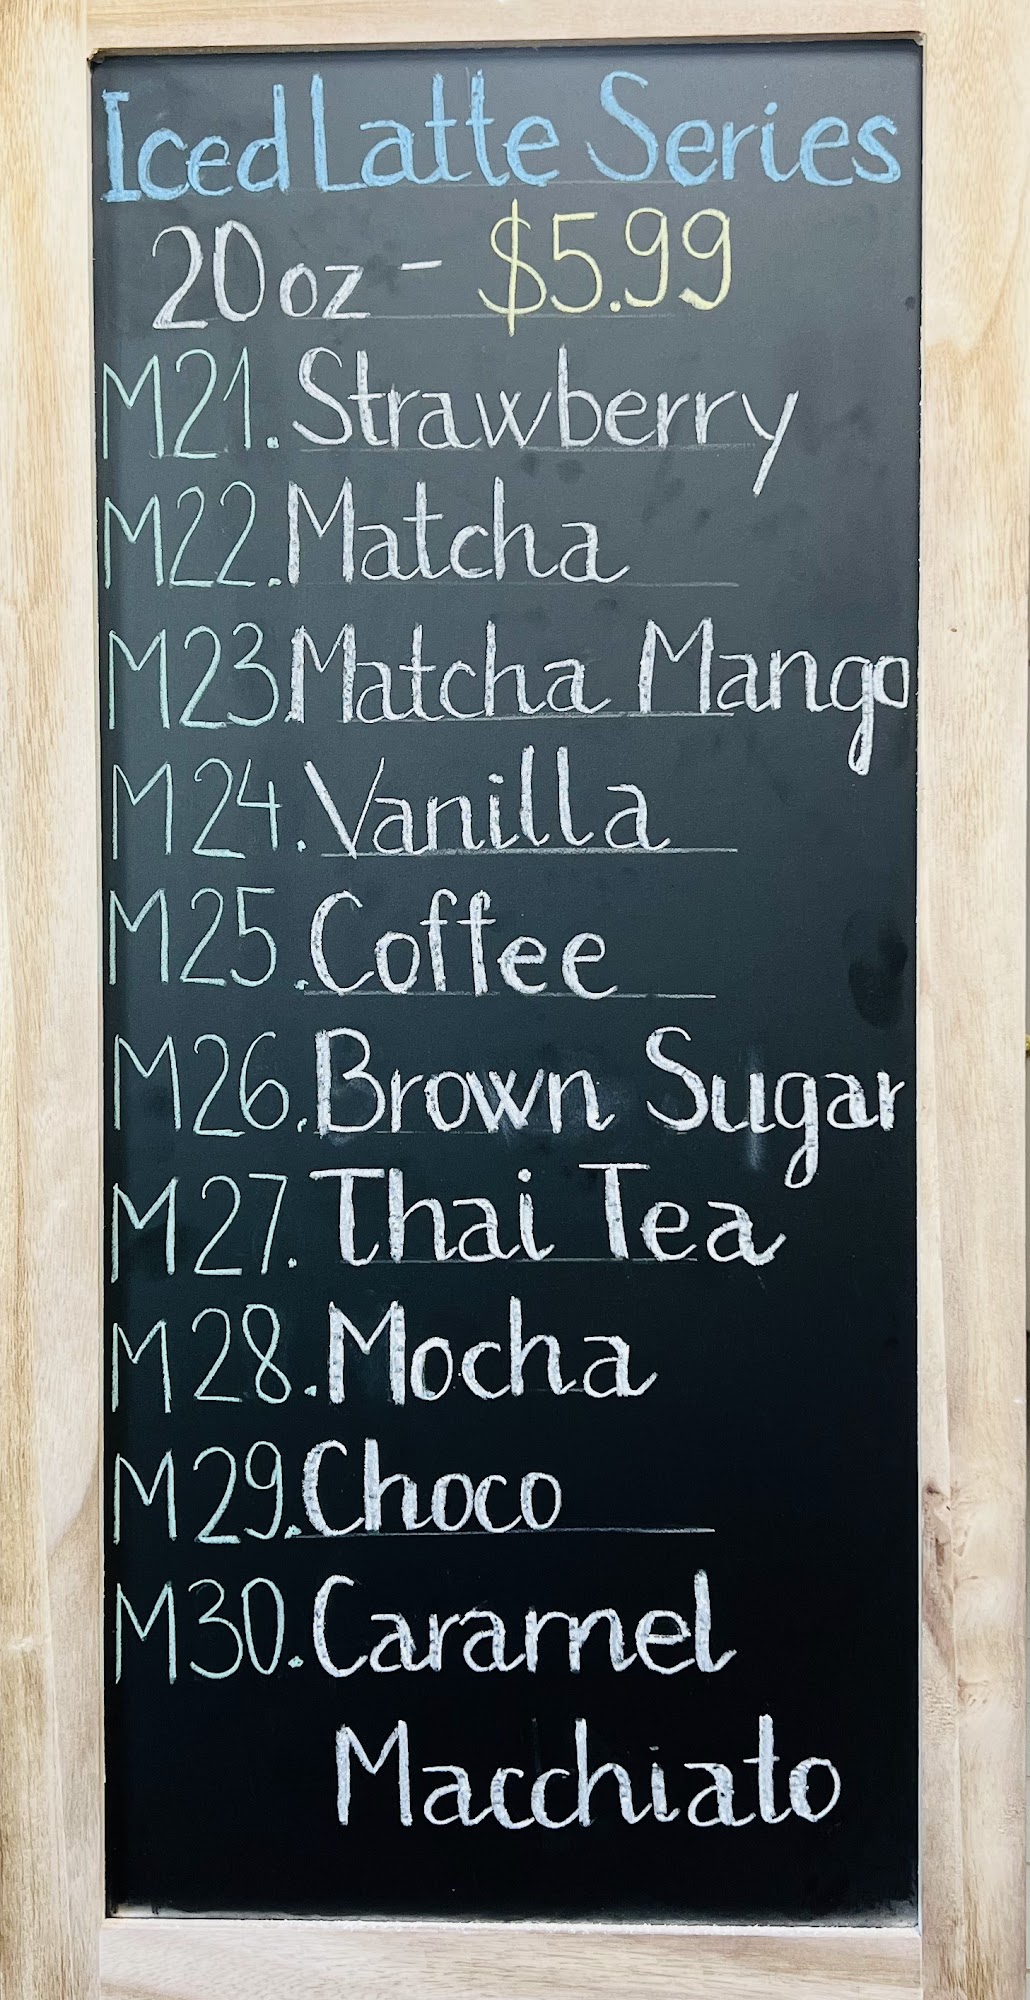 Iced Latte Series
20oz - $5.99
M21. Strawberry
M22. Matcha
M23. Matcha Mango
M24. Vanilla
M25. Coffee
M26. Brown Sugar
M27. Thai Tea
M28. Mocha
M29. Choco
M30. Caramel
Macchiato